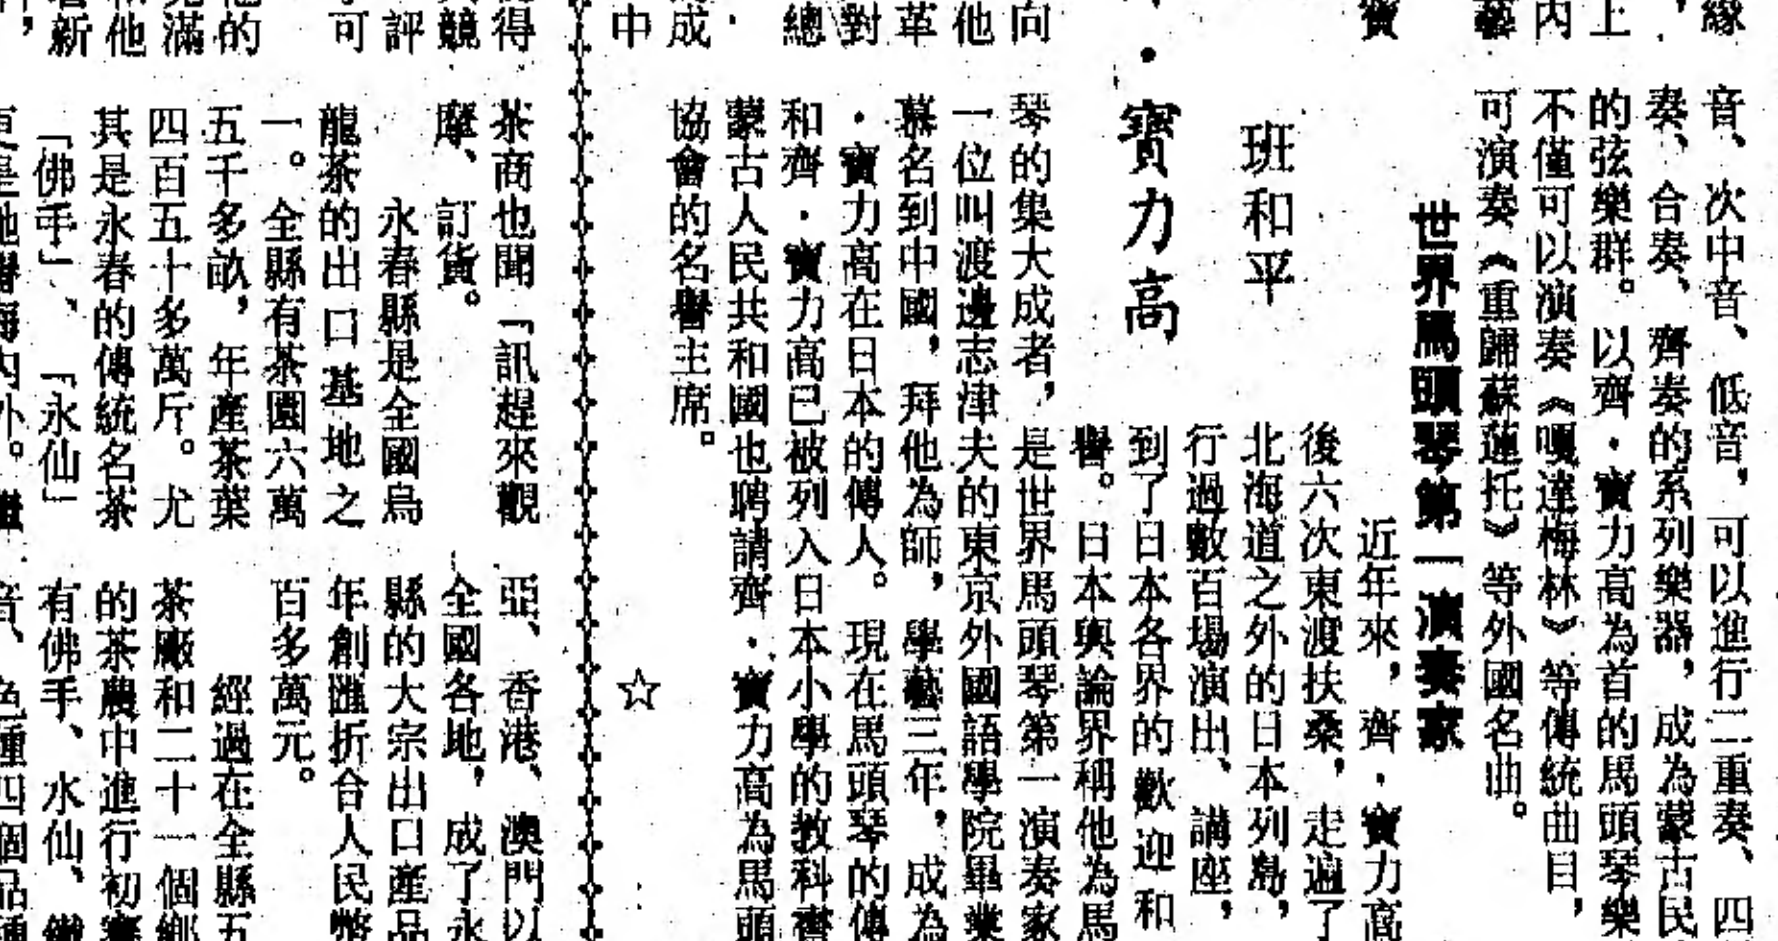 緣
上
內
藝
寶
向
他
革
對
總
成
中
音、次中音、低音，可以進行二重奏、四
奏、合奏、齊奏的系列樂器，成為蒙古民
的弦樂群。以齊·寶力高為首的馬頭琴樂
不僅可以演奏《嘎達梅林》等傳統曲目，
可演奏《重歸蘇蓮托》等外國名曲。
世界馬頭琴第一演奏家
班和平
·寶力高
近年來，齊·寶力高
後六次東渡扶桑，走遍了
北海道之外的日本列島，
行過數百場演出、講座，
到了日本各界的歡迎和
譽。日本輿論界稱他為馬
琴的集大成者，是世界馬頭琴第一演奏家
一位叫渡邊志津夫的東京外國語學院畢業
慕名到中國，拜他為師，學藝三年，成為
·寶力高在日本的傳人。現在馬頭琴的傳
和齊·寶力高已被列入日本小學的教科書
蒙古人民共和國也聘請齊·寶力高為馬頭
協會的名譽主席。
☆
得
競
評
可
他的
充滿
和他
新
茶商也聞「訊趕來觀
摩、訂貨。
永春縣是全國烏
龍茶的出口基地之
一。全縣有茶園六萬
五千多畝，年產茶葉
四百五十多萬斤。尤
其是永春的傳統名茶
「佛手」、「永仙」
更是馳譽海內外。
亞、香港、澳門以
全國各地，成了永
縣的大宗出口產品
年創匯折合人民幣
百多萬元。
經過在全縣五
茶廠和二十一個鄉
的茶農中進行初賽
有佛手、水仙、鐵
音、色種四個品種